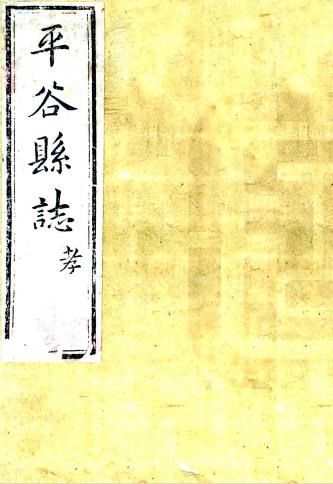 平谷縣誌
孝